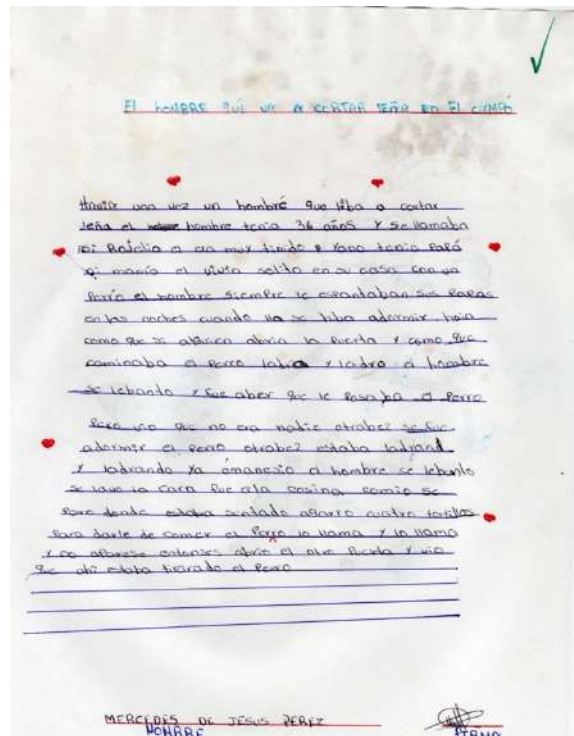 El HOMBRE QUÉ VA A CORTAR LEÑA EN El CAMPO
una vez un hombré que hiba a cortar
leña el hombre tenia 36 años y se llamaba
Rojelio el era muy timido y yano tenia Papá
ni mamá el vivia solito en su casa con un
Perro el hombre siempre le espantaban sus Papas
en las noches cuando lla se hiba adormir hoia
como que si alguien abria la Puerta y como que
caminaba el Perro ladra y ladro el hombre
se lebanto y fue aber que le Pasaba el Perro
Pero vio que no era nadie otrabez se fue
adormir el Perro otrabez estaba ladrand
y ladrando ya amanesio el hombre se lebanto
se lavo la cara fue ala cosina comio se
Paro donde estaba sentado agarro cuatro tortillas
Para darle de comer el Perro lo llama y lo llama
y no aparese entonses abrio el otro Puerta y vio
que ahi estaba tirado el Perro
MERCEDES DE JESUS PEREZ
NOMBRE FIRMA